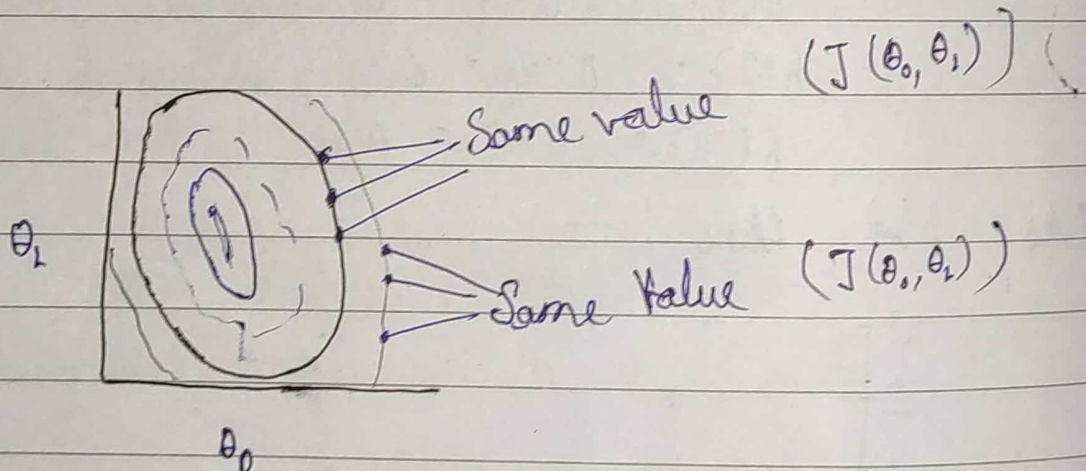 (J(θ₀, θ₁))
Same value
θ₁
Same Value (J(θ₀, θ₁))
θ₀